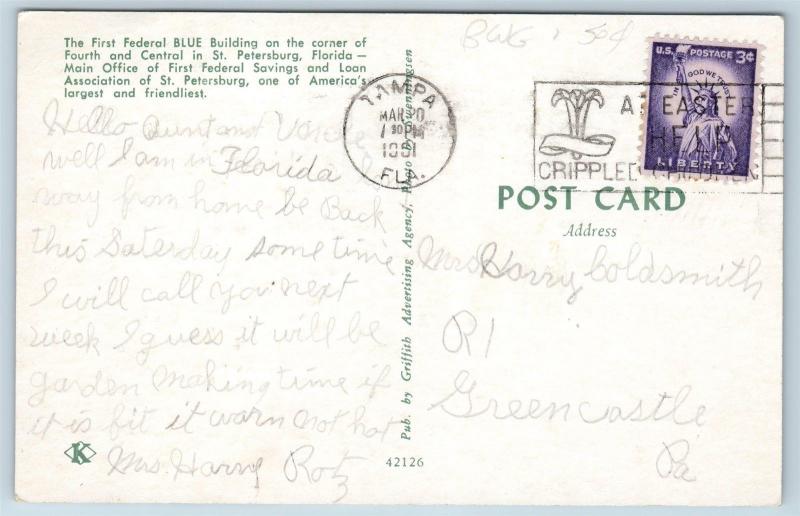 The First Federal BLUE Building on the corner of
Fourth and Central in St. Petersburg, Florida —
Main Office of First Federal Savings and Loan
Association of St. Petersburg, one of America's
largest and friendliest.
Hello Aunt and
well I am in Florida
way from home be Back
this Saterday some time
I will call you next
week I guess it will be
garden making time if
it is fit it warn not hot
Mrs. Harry Rotz
K
Pub. by Griffith Advertising Agency, Photo by Swenningsen
42126
50¢
TAMPA
MAR 20
30 PM
1961
FLA.
AT EASTER
HELP
CRIPPLED CHILDREN
U.S. POSTAGE 3¢
IN GOD WE TRUST
LIBERTY
POST CARD
Address
Mrs Harry Goldsmith
R1
Greencastle
Pa